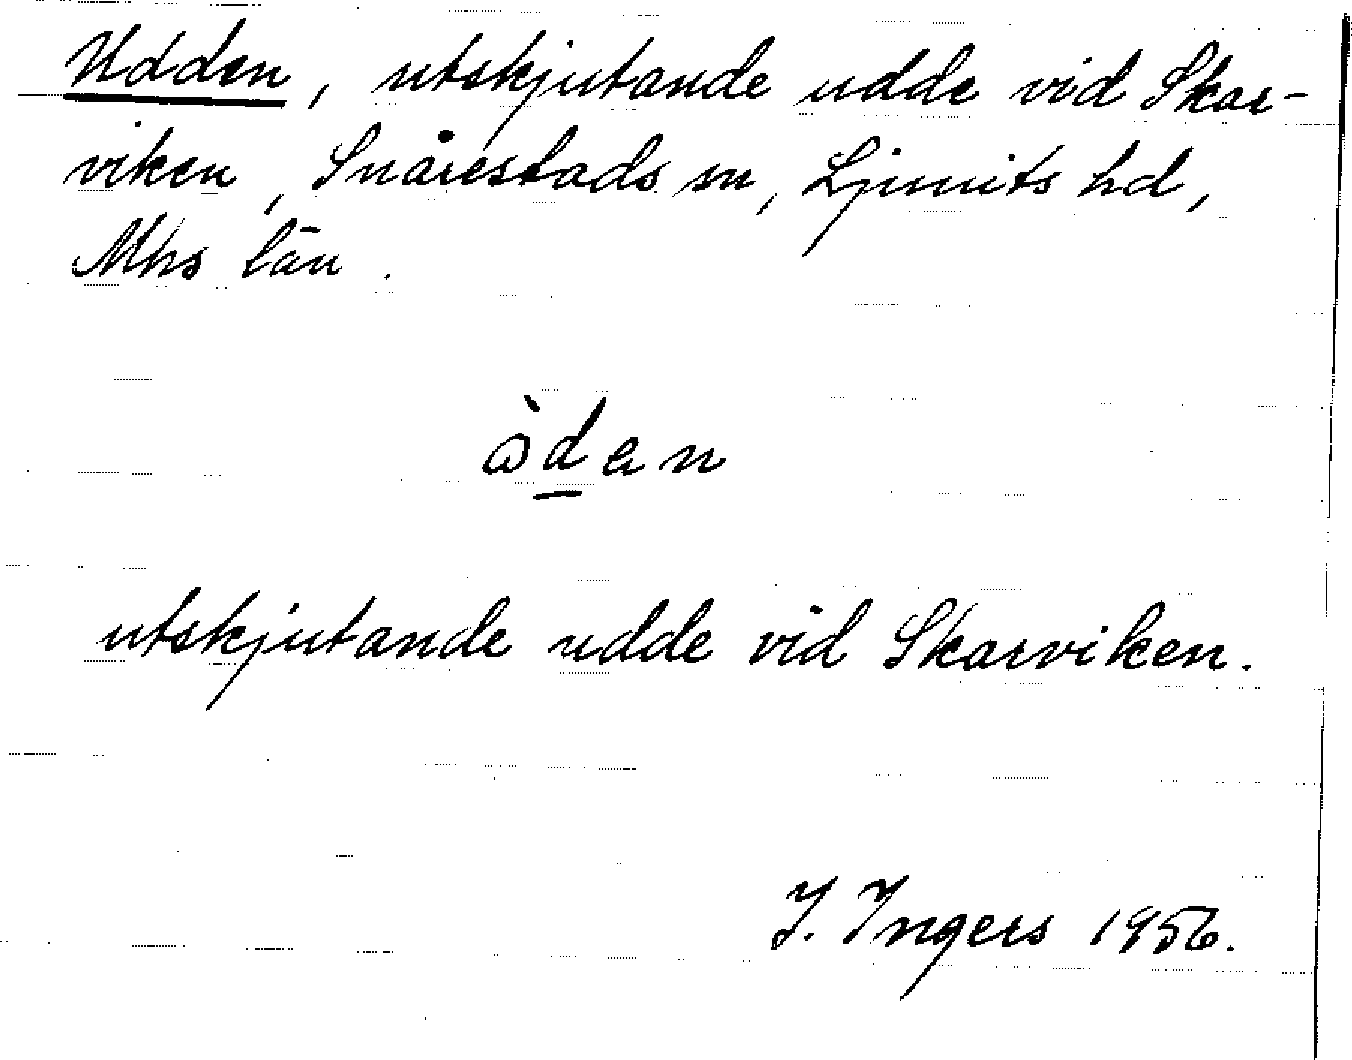 Udden, utskjutande udde vid Skar-
viken, Snårestads sn, Ljunits hd,
Mhs län.
ὰden
utskjutande udde vid Skarviken.
I. Ingers 1956.